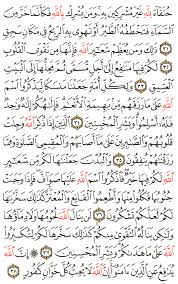 حُنَفَآءَ لِلَّهِ غَيْرَ مُشْرِكِينَ بِهِۦ ۚ وَمَن يُشْرِكْ بِٱللَّهِ فَكَأَنَّمَا خَرَّ مِنَ
ٱلسَّمَآءِ فَتَخْطَفُهُ ٱلطَّيْرُ أَوْ تَهْوِى بِهِ ٱلرِّيحُ فِى مَكَانٍ سَحِيقٍ
٣١ ذَٰلِكَ وَمَن يُعَظِّمْ شَعَٰٓئِرَ ٱللَّهِ فَإِنَّهَا مِن تَقْوَى ٱلْقُلُوبِ
٣٢ لَكُمْ فِيهَا مَنَٰفِعُ إِلَىٰٓ أَجَلٍ مُّسَمًّى ثُمَّ مَحِلُّهَآ إِلَى ٱلْبَيْتِ
ٱلْعَتِيقِ ٣٣ وَلِكُلِّ أُمَّةٍ جَعَلْنَا مَنسَكًا لِّيَذْكُرُوا۟ ٱسْمَ
ٱللَّهِ عَلَىٰ مَا رَزَقَهُم مِّنۢ بَهِيمَةِ ٱلْأَنْعَٰمِ ۗ فَإِلَٰهُكُمْ إِلَٰهٌ وَٰحِدٌ
فَلَهُۥٓ أَسْلِمُوا۟ ۗ وَبَشِّرِ ٱلْمُخْبِتِينَ ٣٤ ٱلَّذِينَ إِذَا ذُكِرَ ٱللَّهُ وَجِلَتْ
قُلُوبُهُمْ وَٱلصَّٰبِرِينَ عَلَىٰ مَآ أَصَابَهُمْ وَٱلْمُقِيمِى ٱلصَّلَوٰةِ وَمِمَّا
رَزَقْنَٰهُمْ يُنفِقُونَ ٣٥ وَٱلْبُدْنَ جَعَلْنَٰهَا لَكُم مِّن شَعَٰٓئِرِ
ٱللَّهِ لَكُمْ فِيهَا خَيْرٌ ۖ فَٱذْكُرُوا۟ ٱسْمَ ٱللَّهِ عَلَيْهَا صَوَآفَّ ۖ فَإِذَا وَجَبَتْ
جُنُوبُهَا فَكُلُوا۟ مِنْهَا وَأَطْعِمُوا۟ ٱلْقَانِعَ وَٱلْمُعْتَرَّ ۚ كَذَٰلِكَ سَخَّرْنَٰهَا
لَكُمْ لَعَلَّكُمْ تَشْكُرُونَ ٣٦ لَن يَنَالَ ٱللَّهَ لُحُومُهَا وَلَا دِمَآؤُهَا
وَلَٰكِن يَنَالُهُ ٱلتَّقْوَىٰ مِنكُمْ ۚ كَذَٰلِكَ سَخَّرَهَا لَكُمْ لِتُكَبِّرُوا۟
ٱللَّهَ عَلَىٰ مَا هَدَىٰكُمْ ۗ وَبَشِّرِ ٱلْمُحْسِنِينَ ٣٧ ۞ إِنَّ ٱللَّهَ
يُدَٰفِعُ عَنِ ٱلَّذِينَ ءَامَنُوٓا۟ ۗ إِنَّ ٱللَّهَ لَا يُحِبُّ كُلَّ خَوَّانٍ كَفُورٍ ٣٨